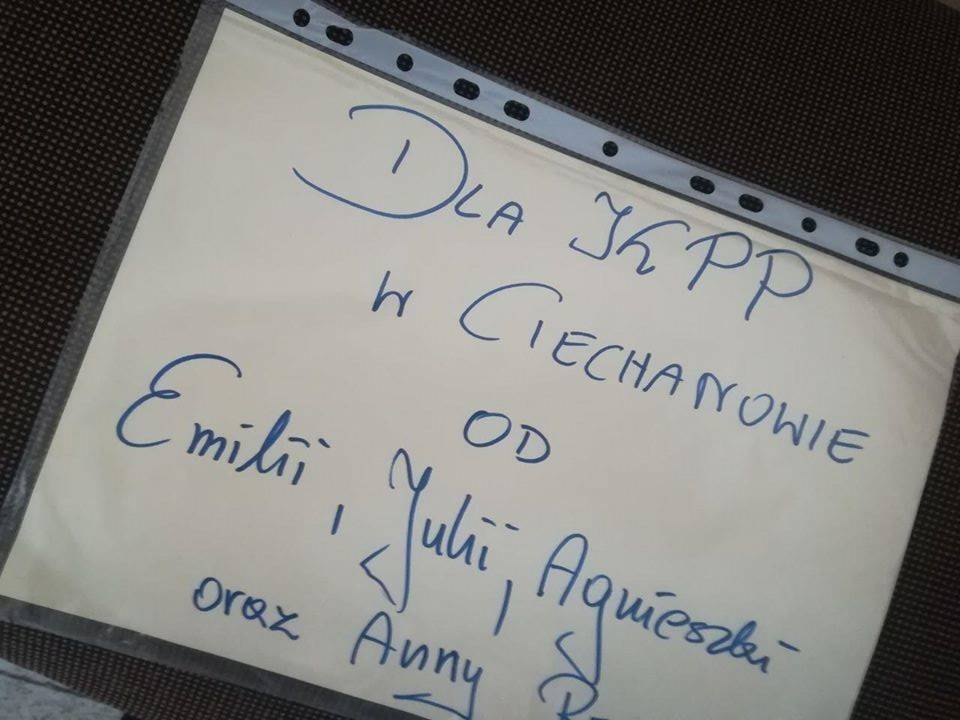 DLA JKPP
W CIECHANOWIE
OD
Emilii, Julii, Agnieszki
oraz Anny